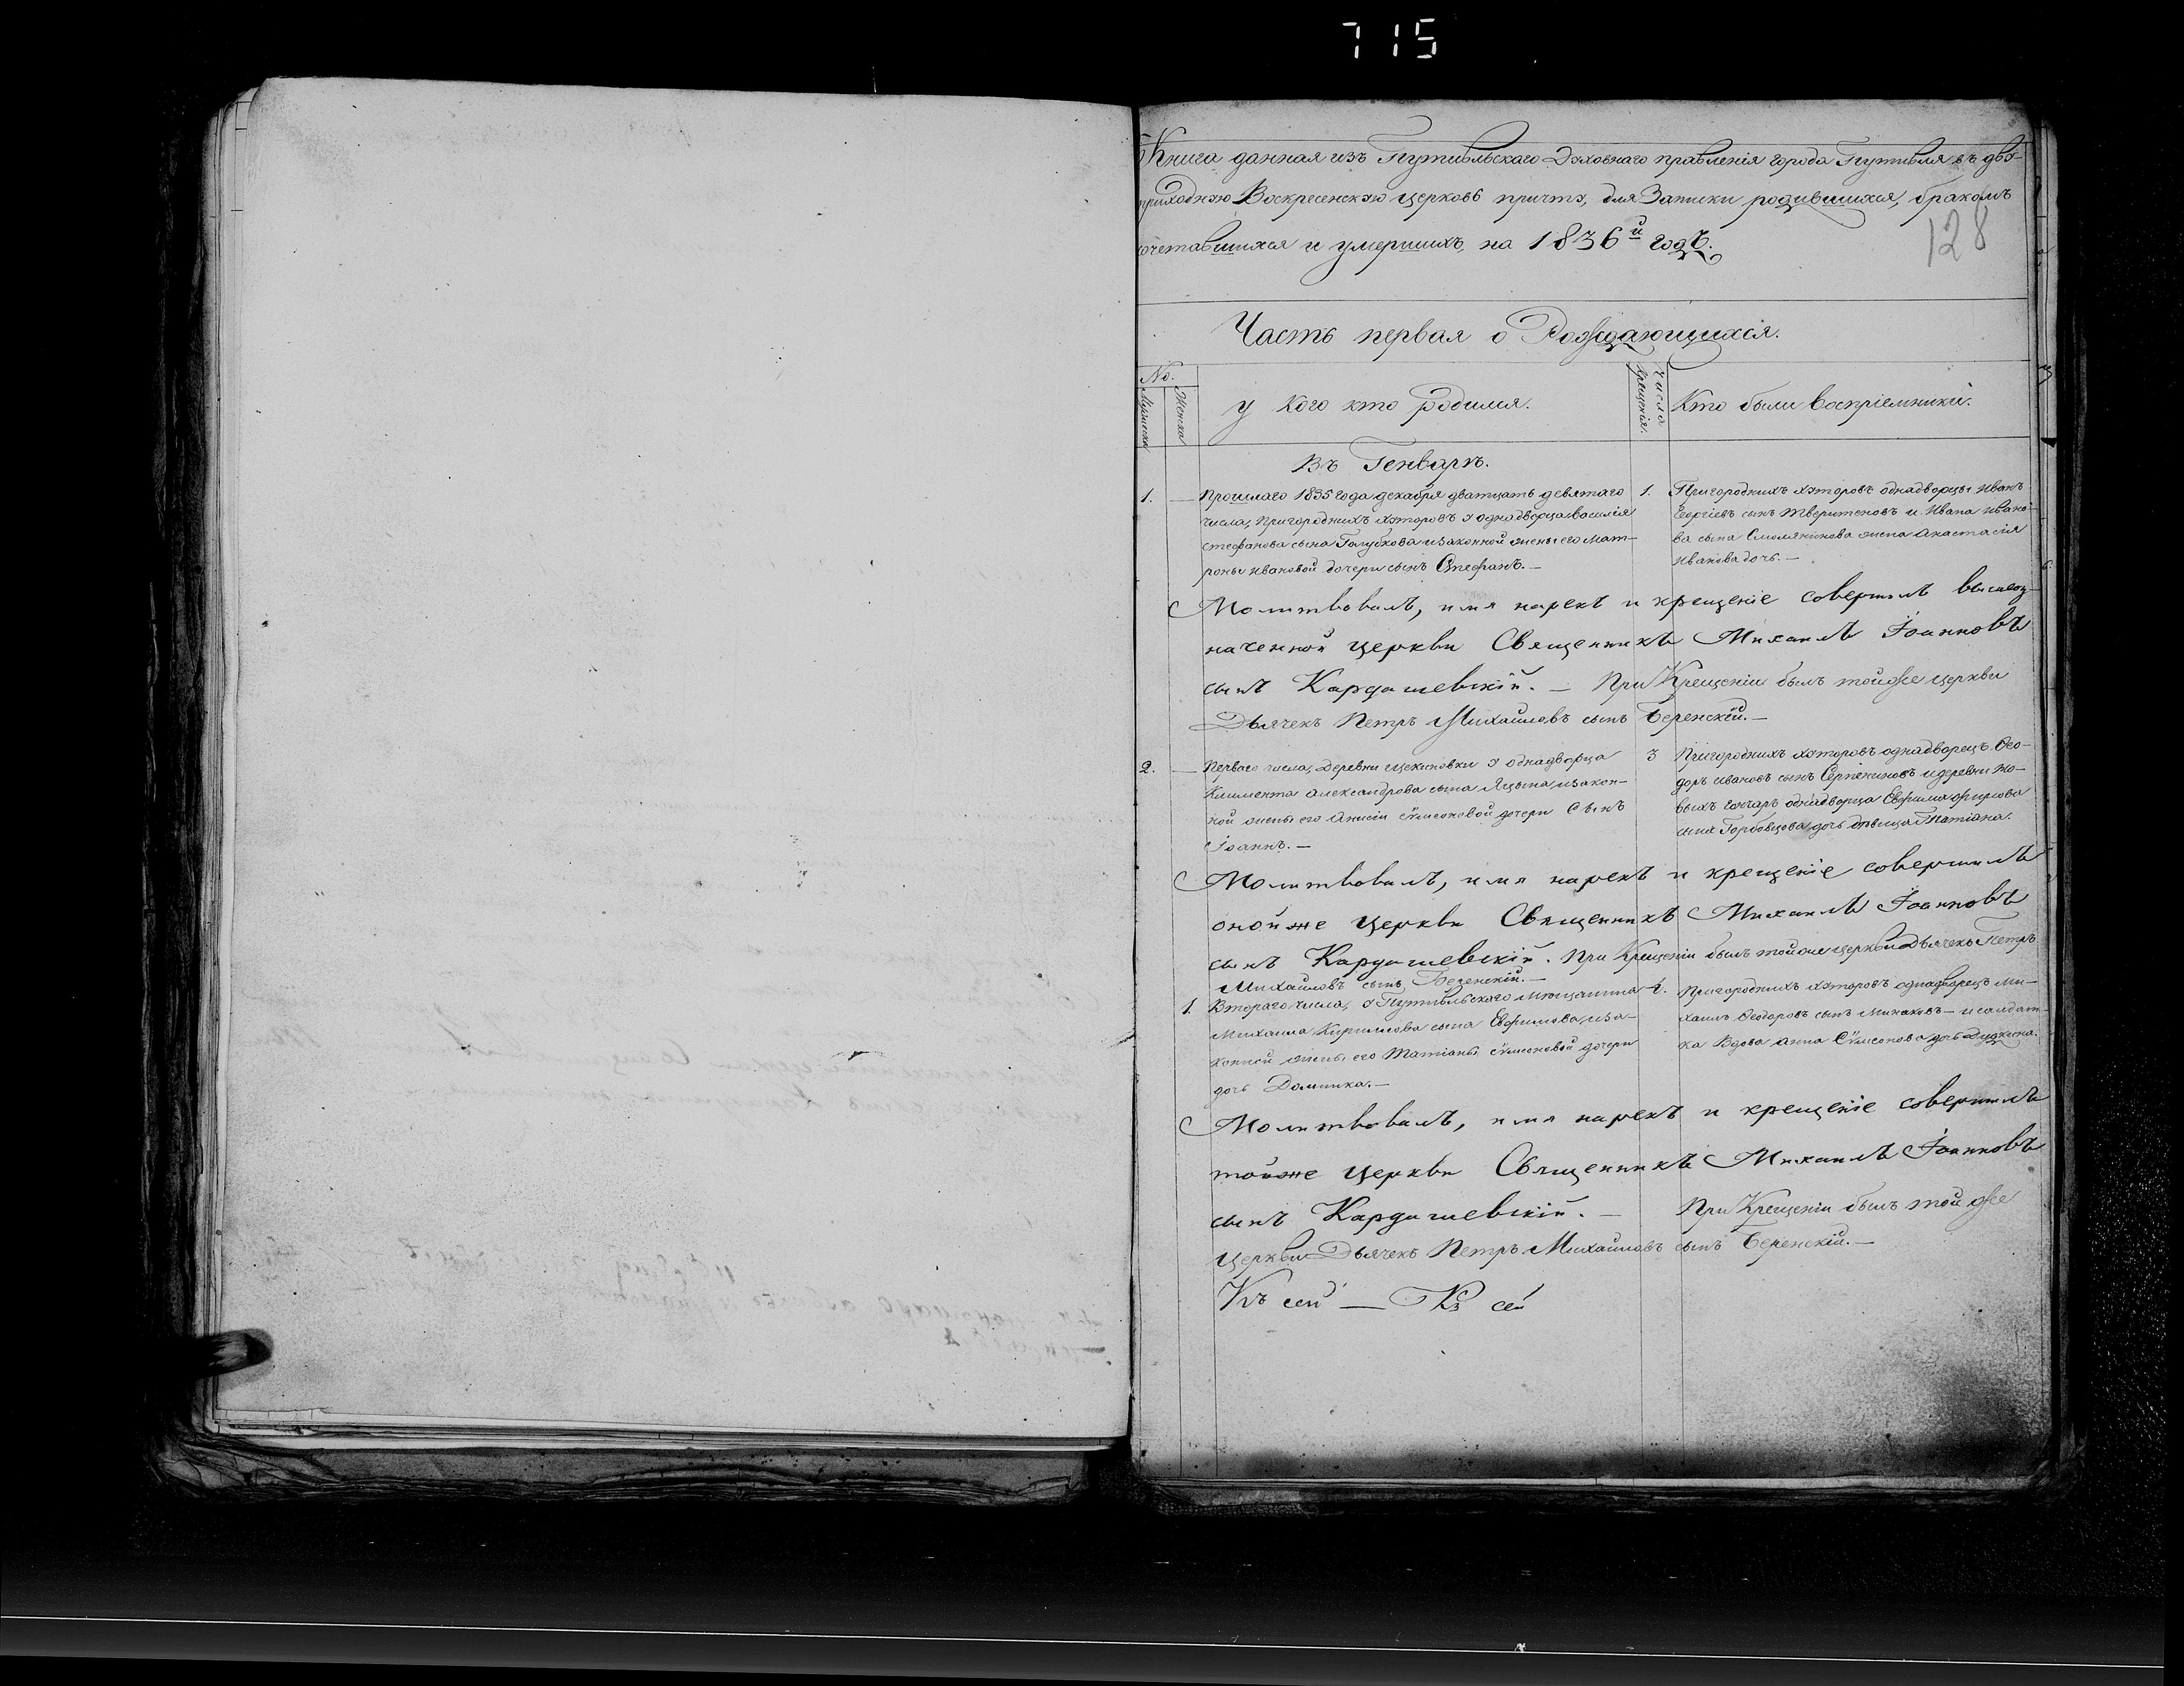 715
Книга данная изъ Путивльскаго Духовнаго правленія города Путивля въ двѹ-
приходнѹю Воскресенскѹю церковь причтѹ, для Записки родившихся, бракомъ
сочетавшихся и умершихъ, на 1836й годъ.
128
Часть первая о Рождающихся.
No.
Мужеска
Женска
у кого кто родился.
Число крещенія.
Кто были воспріемники.
Въ Генварѣ.
1. — Прошлаго 1835 года декабря дватцать девятаго
числа, Пригородныхъ хѹторовъ ѹ однадворца василія
стефанова сына Голубкова изаконной жены его мат-
роны ивановой дочери сынъ Стефанъ. —
1. Пригородныхъ хѹторовъ однадворцы иванъ
Георгіевъ сынъ и ивана ивано-
ва сына Смолянинова жена анастасія
иванова дочь. —
Молитвовалъ, имя нарекъ и крещеніе совершилъ вышеоз-
наченной церкви Священникъ Михаилъ Іоанновъ
сынъ Кардашевскій. — При Крещеніи былъ тойже церкви
Дьячекъ Петръ Михайловъ сынъ Беренскій. —
2. — Перваго числа, Деревни ѹ однадворца
Климента александрова сына Яцына, изакон-
ной жены его Анисіи сѵмеоновой дочери сынъ
Іоаннъ. —
3 Пригородныхъ хѹторовъ однадворецъ Ѳео-
доръ ивановъ сынъ идеревни но-
выхъ гончаръ однадворца Евфима
сына Горбовцова дочь дѣвица Татіана.
Молитвовалъ, имя нарекъ и крещеніе совершилъ
онойже церкви Священникъ Михаилъ Іоанновъ
сынъ Кардашевскій. При Крещеніи былъ тойже церкви Дьячекъ Петръ
Михайловъ сынъ Беренскій. —
1. Втораго числа, ѹ Путивльскаго мѣщанина
Михаила Кириллова сына Евфимова, иза-
конной жены его Татіаны сѵмеоновой дочери
дочь Домника. —
Пригородныхъ хѹторовъ однадворецъ ми-
хаилъ Ѳеодоровъ сынъ Минаковъ — и салдат-
ка Вдова анна Сѵмеонова дочь
Молитвовалъ, имя нарекъ и крещеніе совершилъ
тойже церкви Священникъ Михаилъ Іоанновъ
сынъ Кардашевскій. — При Крещеніи былъ той же
церкви Дьячекъ Петръ Михайловъ сынъ Беренскій. —
Къ сей — Къ сей